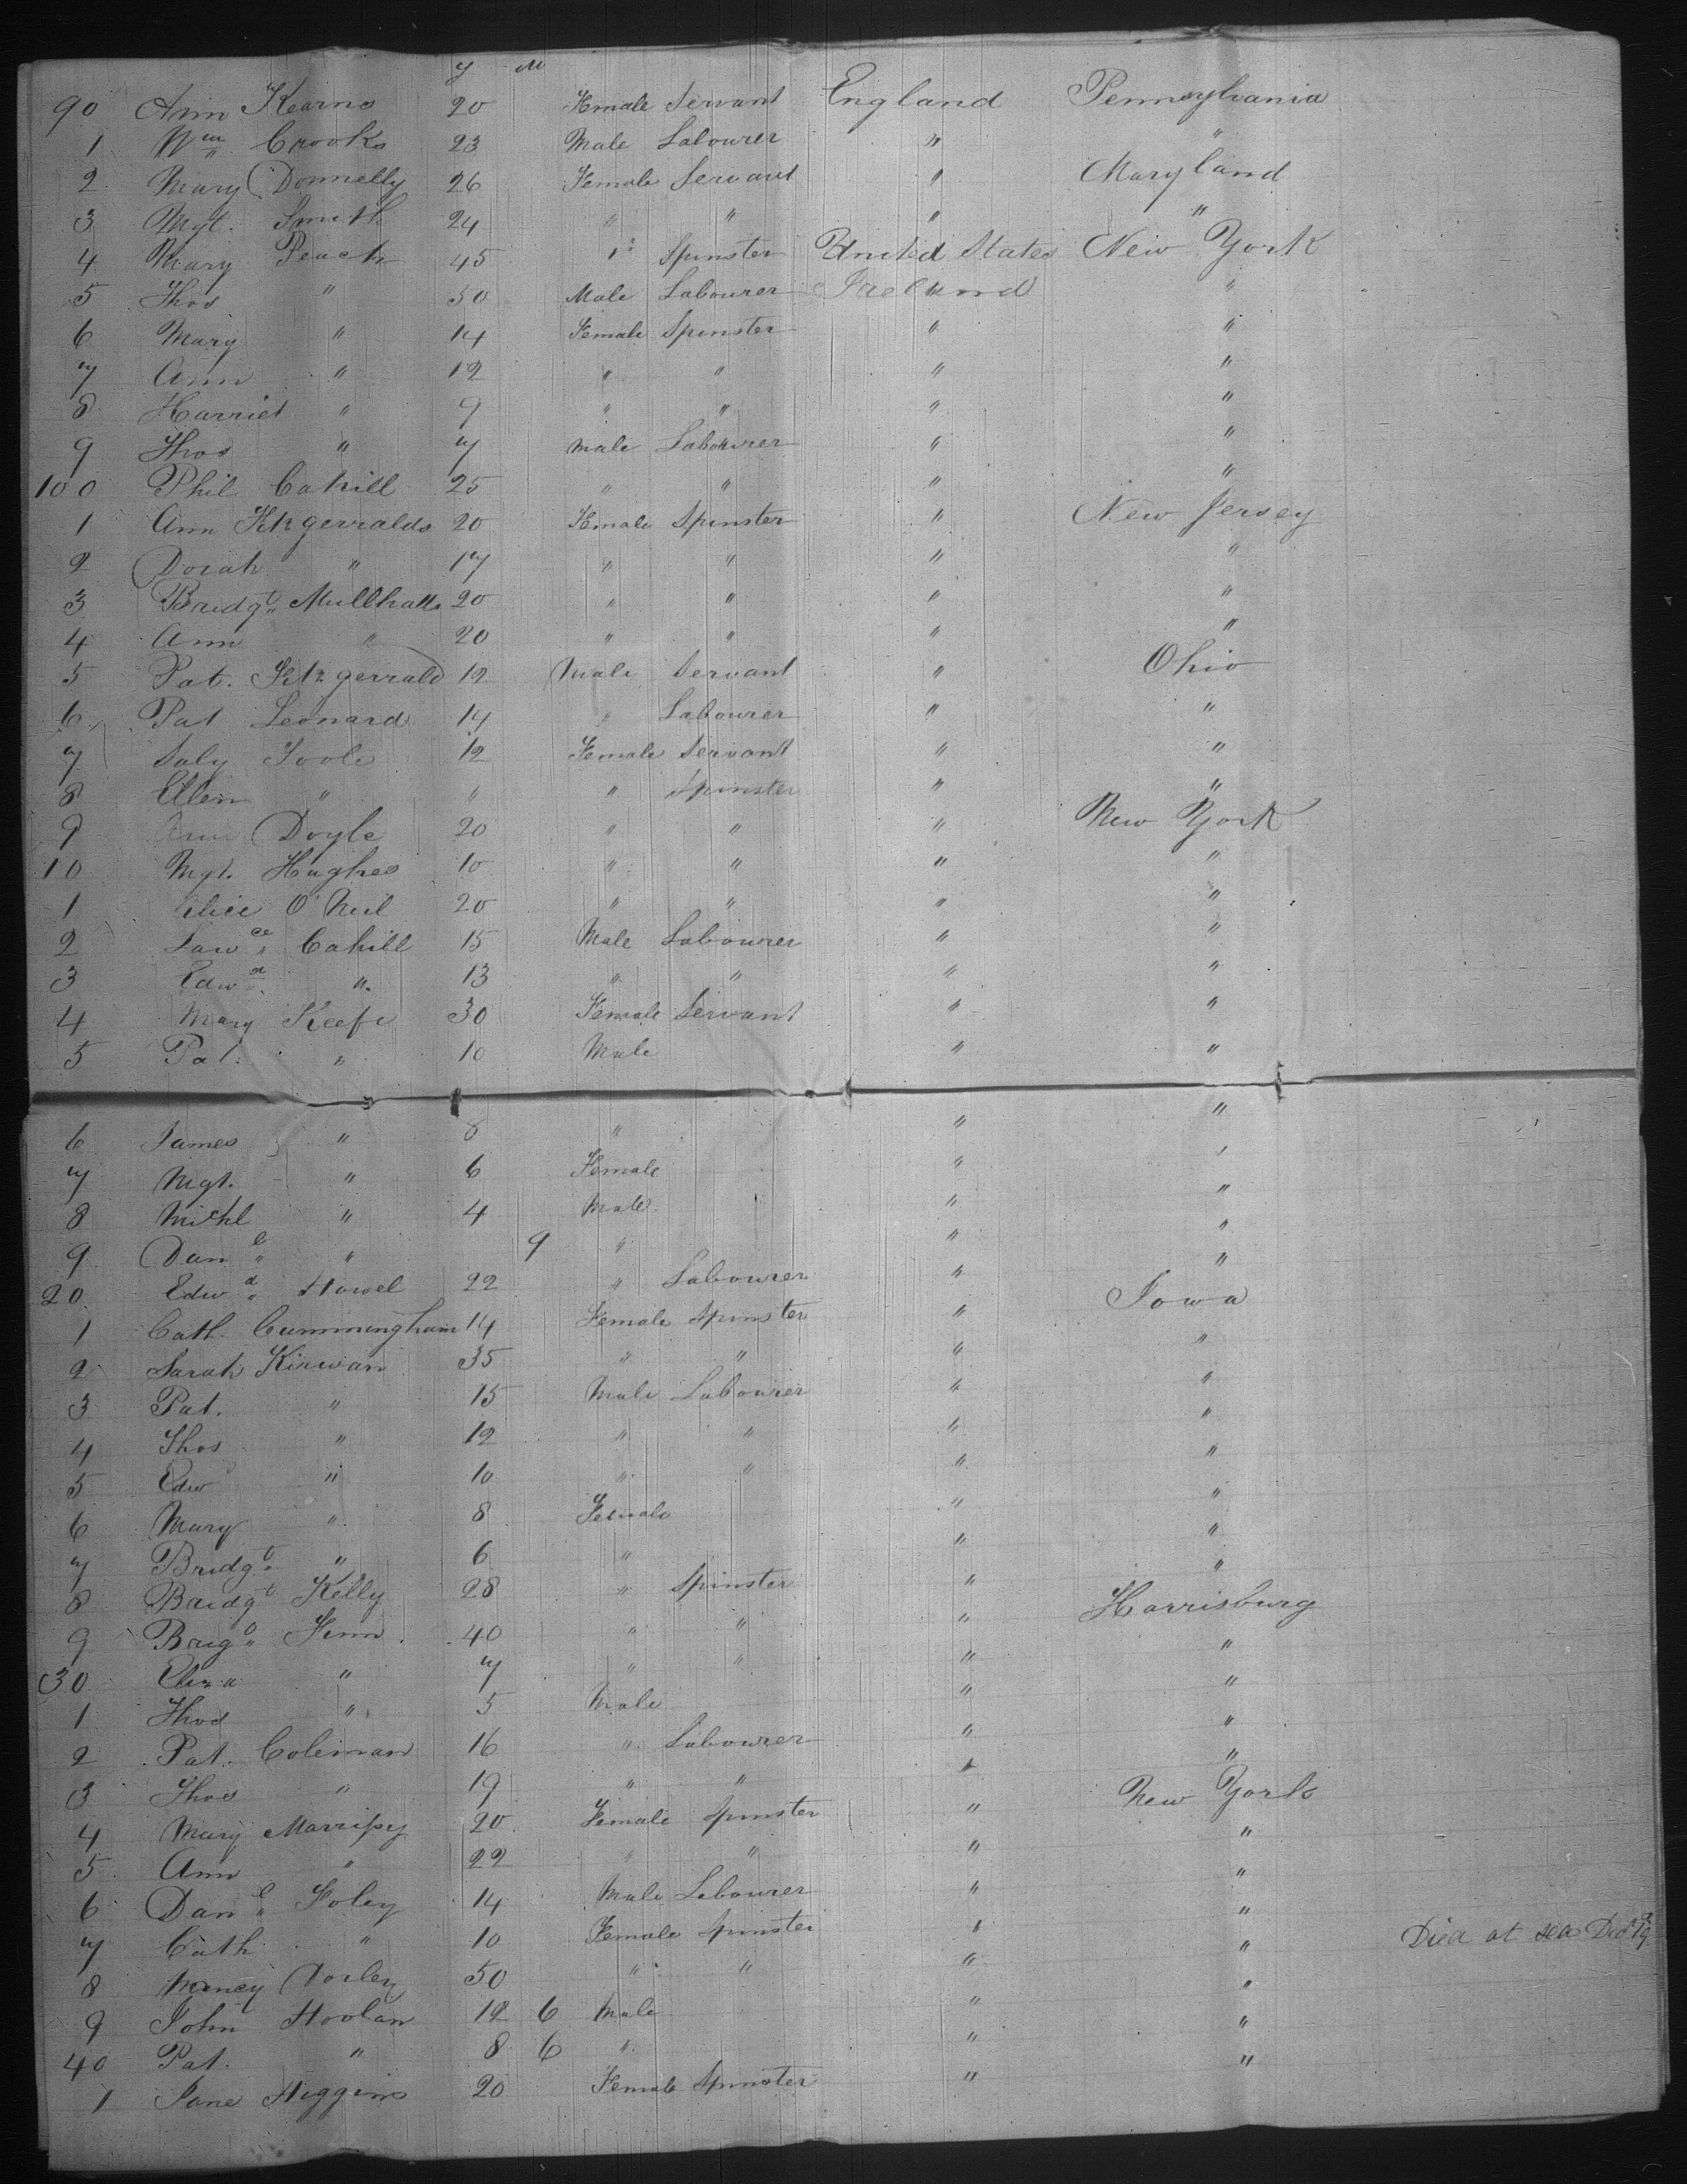 y M
90 Ann Kearns 20 Female Servant England Pennsylvania
1 Wm Crooks 23 Male Labourer " "
2 Mary Donnelly 26 Female Servant " Maryland
3 Mgt. Smith 24 " " " "
4 Mary Peach 45 " Spinster United States New York
5 Thos " 50 Male Labourer Ireland "
6 Mary " 14 Female Spinster " "
7 Ann " 12 " " " "
8 Harriet " 9 " " " "
9 Thos " 7 Male Labourer " "
100 Phil Cahill 25 " " " "
1 Ann Fitzgerralds 20 Female Spinster " New Jersey
2 Dorah " 17 " " " "
3 Bridgt Mullhalls 20 " " " "
4 Ann " 20 " " " "
5 Pat. Fitzgerrald 12 Male Servant " Ohio
6 Pat Leonard 14 " Labourer " "
7 Saly Toole 12 Female Servant " "
8 Ellen " " " Spinster " "
9 Ann Doyle 20 " " " New York
10 Mgt. Hughes 10 " " " "
1 Alice O'Neil 20 " " " "
2 Lawce Cahill 15 Male Labourer " "
3 Edwd. " 13 " " " "
4 Mary Keefe 30 Female Servant " "
5 Pat. " 10 Male " "
6 James " 8 " " "
7 Mgt. " 6 Female " "
8 Michl " 4 Male " "
9 Danl " 9 " " "
20 Edwd Howel 22 " Labourer " "
1 Cath. Cummingham 14 Female Spinster " Iowa
2 Sarah Kirwan 35 " " " "
3 Pat. " 15 Male Labourer " "
4 Thos " 12 " " " "
5 Edwd " 10 " " " "
6 Mary " 8 Female " "
7 Bridgt " 6 " " "
8 Bridgt Kelly 28 " Spinster " "
9 Brigt Finn 40 " " " Harrisburg
30 Eliza " 7 " " " "
1 Thos " 5 Male " "
2 Pat. Coleman 16 " Labourer " "
3 Thos " 19 " " " "
4 Mary Marrisy 20 Female Spinster " New York
5 Ann " 22 " " " "
6 Danl Foley 14 Male Labourer " "
7 Cath " 10 Female Spinster " "
8 Nancy 50 " " " " Died at sea
9 John Hoolan 12 6 Male " "
40 Pat. " 8 6 " " "
1 Jane Higgins 20 Female Spinster " "